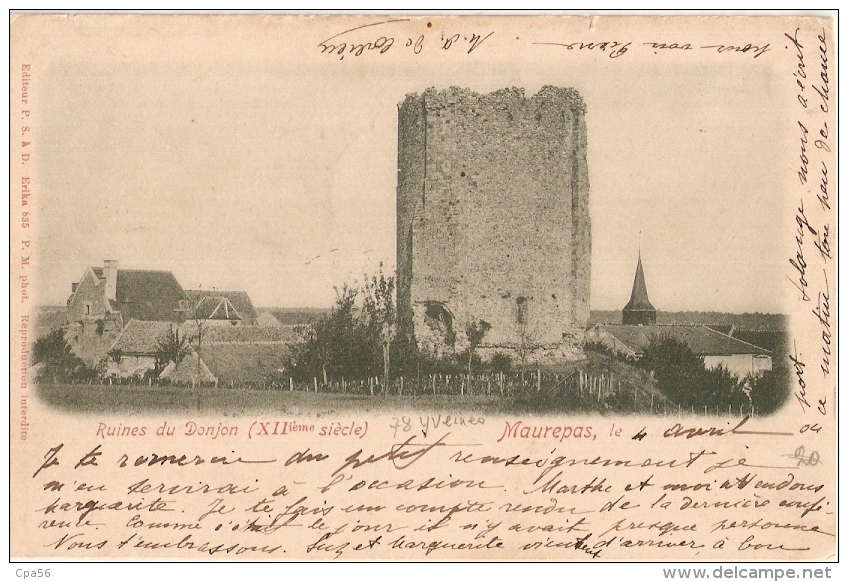 Editeur P. S. à D. Erika 835 P. M. phot. Reproduction interdite
Ruines du Donjon (XIIième siècle)
78 Yvelines
Maurepas, le 4 avril 04
20
Je te remercie du petit renseignement je
m'en servirai à l'occasion. Marthe et moi attendons
Marguerite. Je te fais un compte rendu de la dernière confé-
rence. Comme c'était le jour il n'y avait presque personne
Nous t'embrassons. Suz et Marguerite viennent d'arriver à bon
port. Solange nous a écrit
ce matin ton peu de chance
pour son
M. A. De
Cpa56
www.delcampe.net